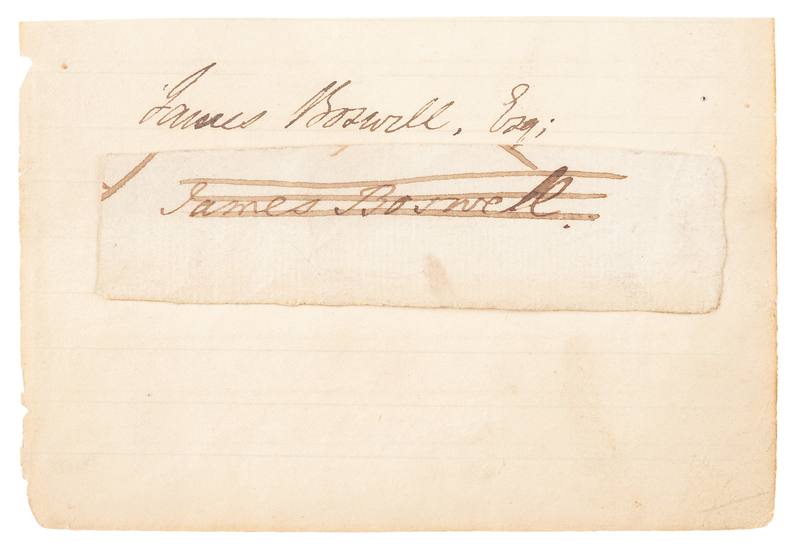 James Boswell, Esq;
James Boswell.